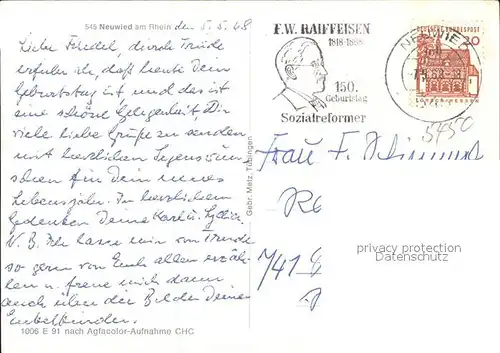 545 Neuwied am Rhein den 5.5.68
Liebe Friedel, durch Trude
erfuhr ich, daß heute Dein
Geburtstag ist und das ist
eine schöne Gelegenheit Dir
viele liebe Grüße zu senden
mit herzlichen Segenswün
schen für Dein neues
Lebensjahr. In herzlichem
Gedenken Deine
N.B. Ich lasse mir von Trude
so gern von Euch allen erzäh
len u. freue mich dann
auch über die Bilder Deiner
Enkelkinder.
1006 E 91 nach Agfacolor-Aufnahme CHC
Gebr. Metz, Tübingen
F.W. RAIFFEISEN
1818-1888
150.
Geburtstag
Sozialreformer
NEUWIE
DEUTSCHE BUNDESPOST
20
LORSCH/HESSEN
5450
Frau F.
7/41
privacy protection
Datenschutz